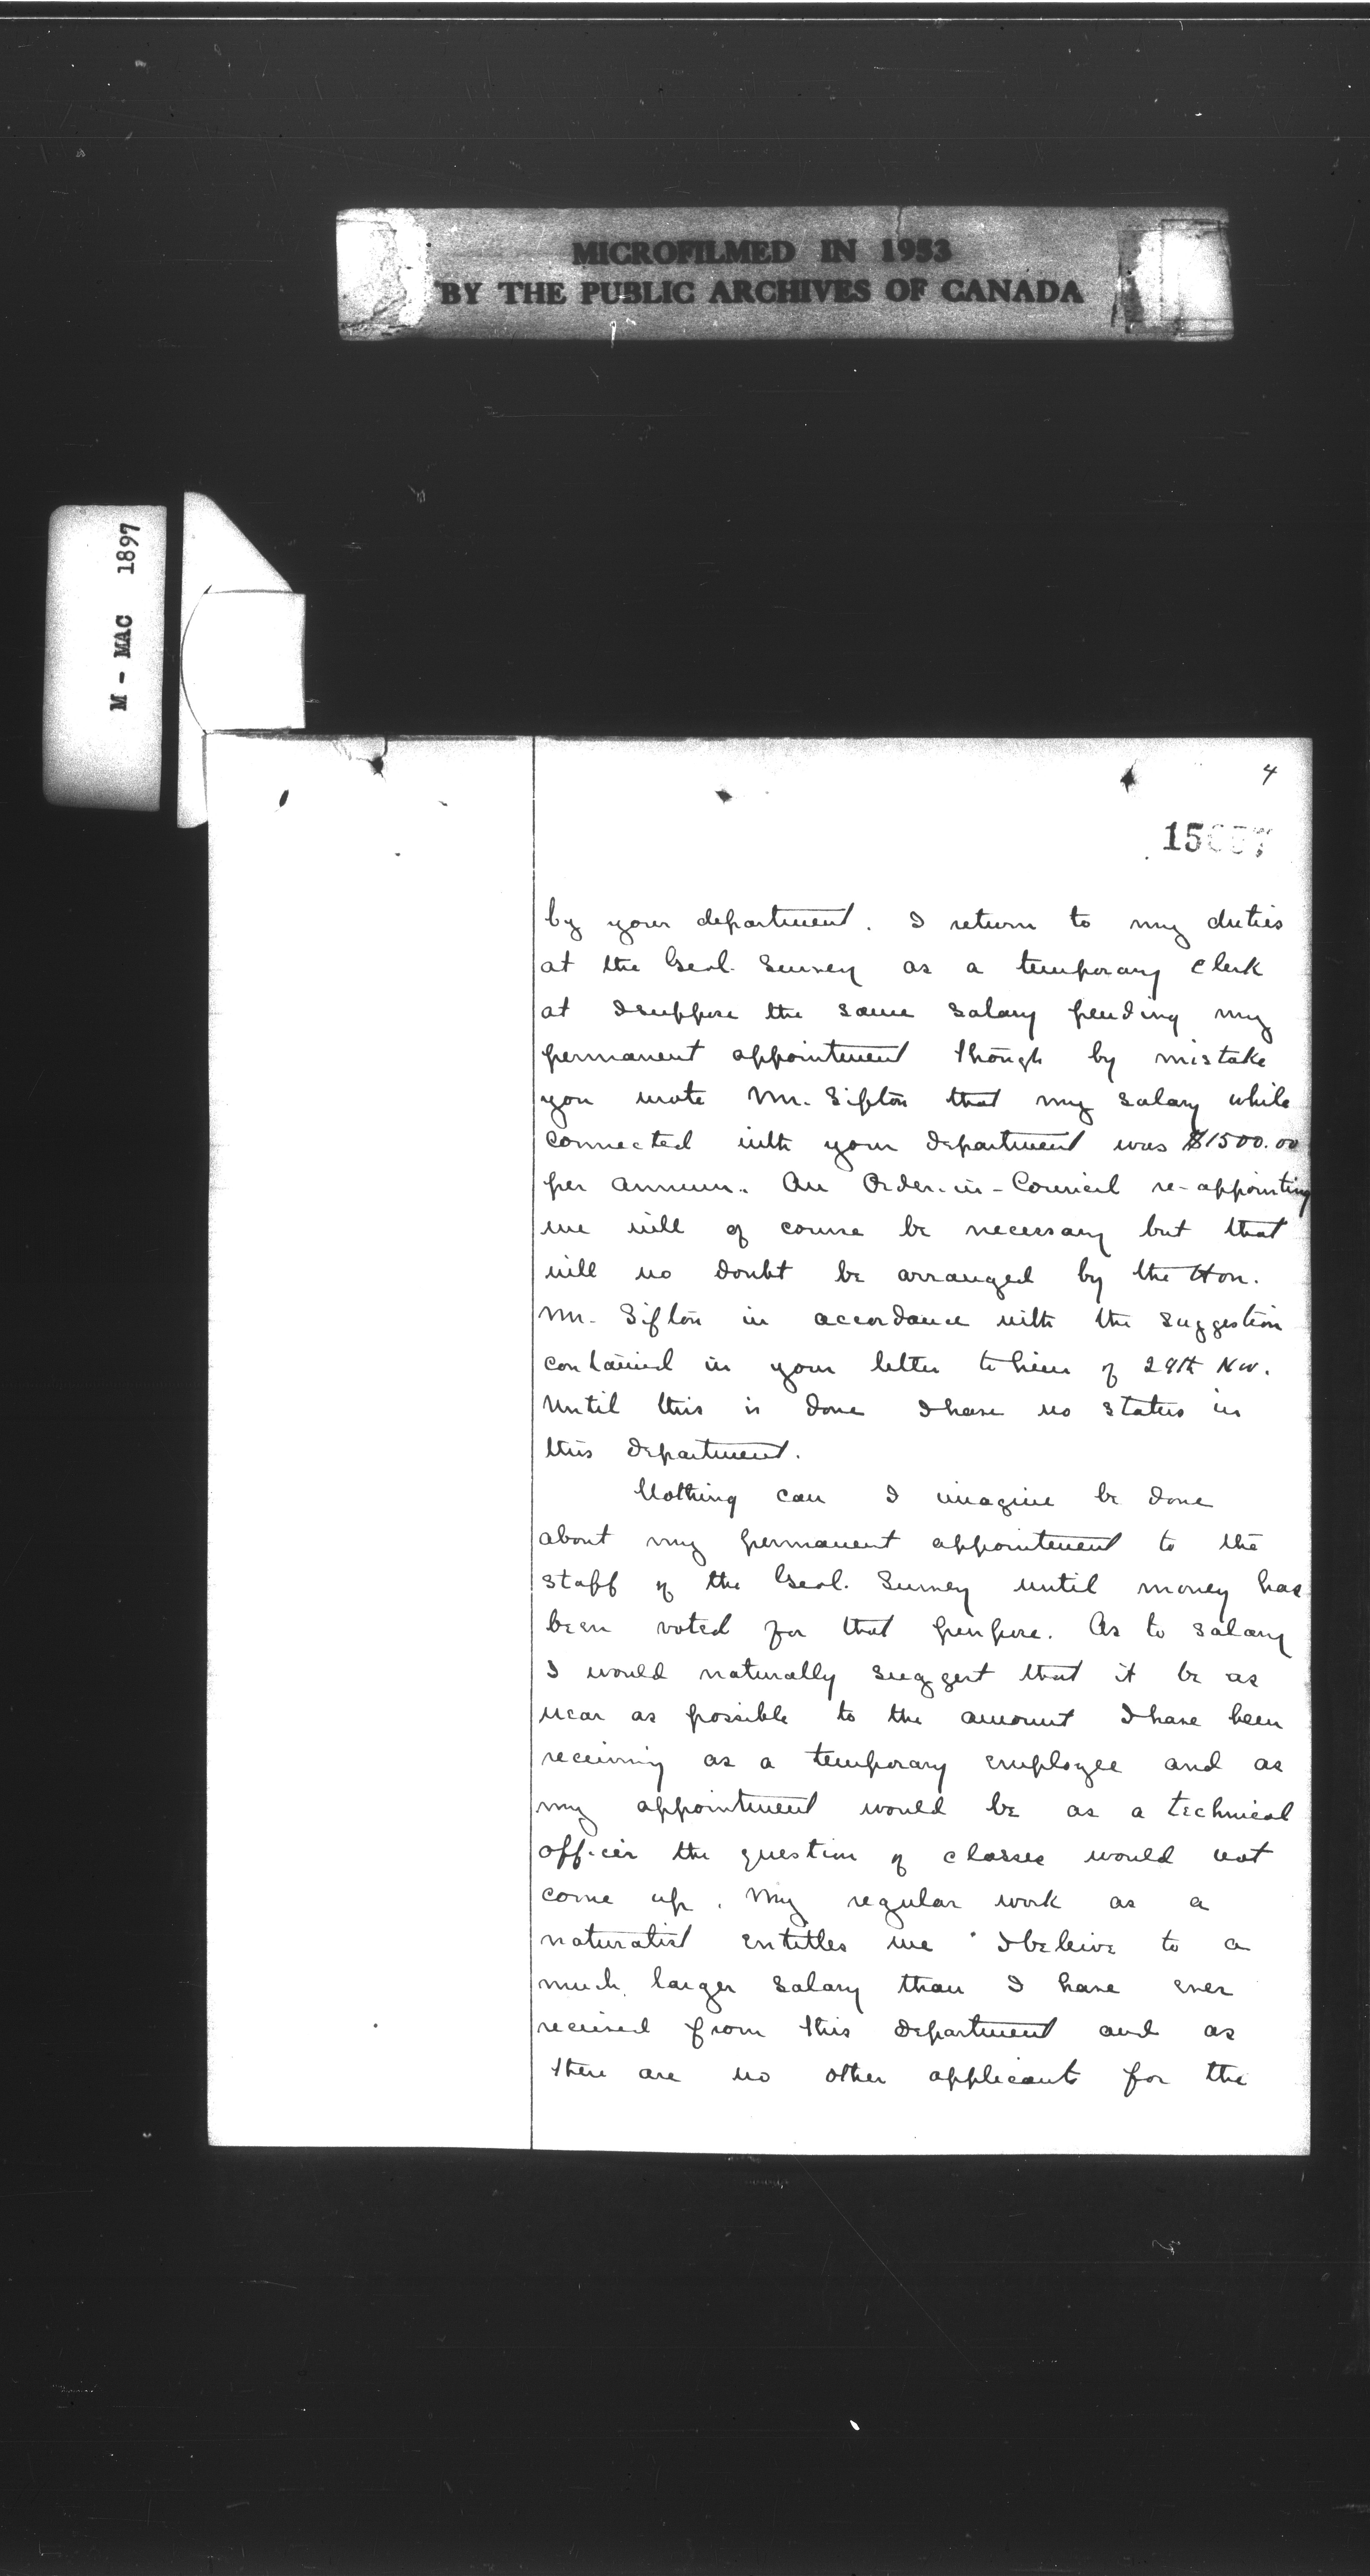 MICROFILMED IN 1953
BY THE PUBLIC ARCHIVES OF CANADA
M - MAC 1897
4
by your department. I return to my duties
at the Geol. Survey as a temporary clerk
at I suppose the same salary pending my
permanent appointment though by mistake
you wrote Mr. Sifton that my salary while
connected with your department was $1500.00
per annum. An Order-in-Council re-appointing
me will of course be necessary but that
will no doubt be arranged by the Hon.
Mr. Sifton in accordance with the suggestion
contained in your letter to him of 29th Nov.
Until this is done I have no status in
this department.
Nothing can I imagine be done
about my permanent appointment to the
staff of the Geol. Survey until money has
been voted for that purpose. As to salary
I would naturally suggest that it be as
near as possible to the amount I have been
receiving as a temporary employee and as
my appointment would be as a technical
officer the question of classes would not
come up. My regular work as a
naturalist entitles me I beleive to a
much larger salary than I have ever
received from this department and as
there are no other applicants for the